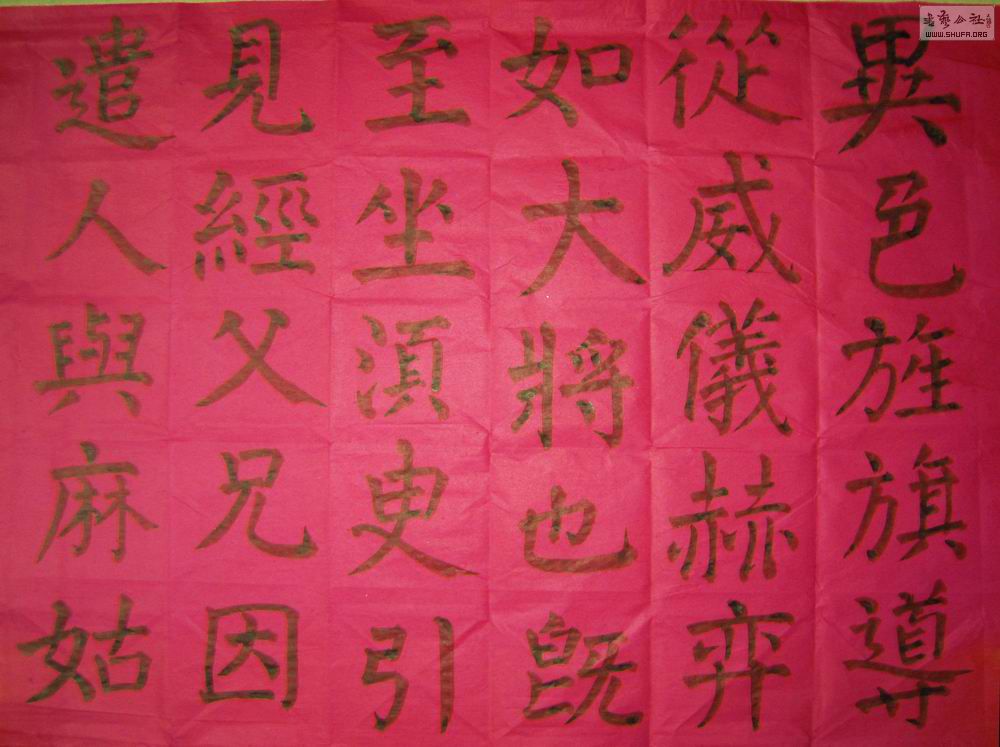 異色旌旗導
從威儀赫弈
如大將也既
至坐湏臾引
見經父兄因
遣人與麻姑
書藝公社
WWW.SHUFA.ORG